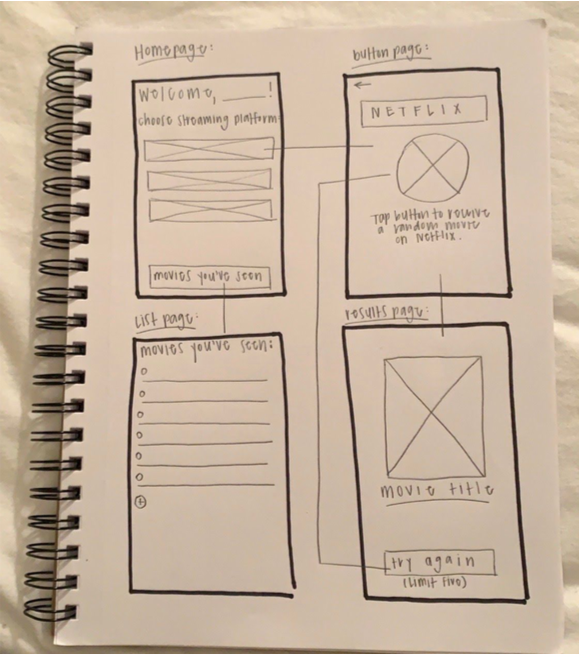 Homepage:
Welcome, ______!
choose streaming platform:
movies you've seen
button page:
←
NETFLIX
Tap button to receive
a random movie
on Netflix.
List page:
movies you've seen:
results page:
movie title
try again
(limit five)